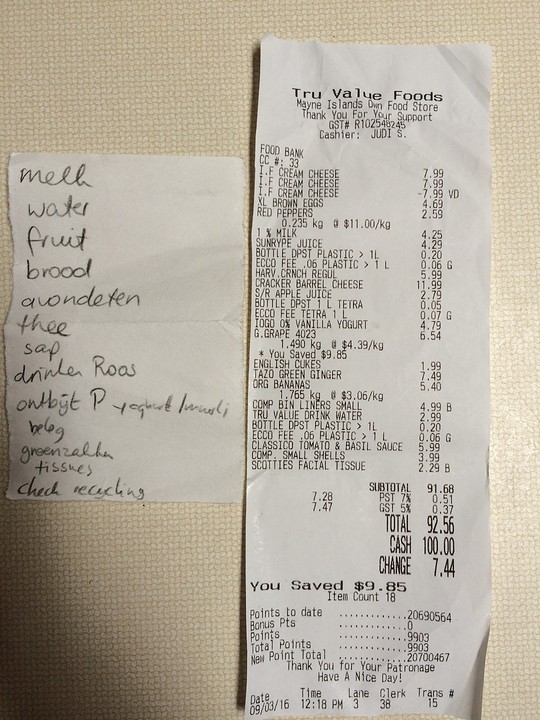 melk
water
fruit
brood
avondeten
thee
sap
drinken Roos
ontbijt P → yogurt / musli
beleg
groenzakken
tissues
check recycling
Tru Value Foods
Mayne Islands Own Food Store
Thank You For Your Support
GST# R102548245
Cashier: JUDI S.
FOOD BANK
CC #: 33
I.F CREAM CHEESE 7.99
I.F CREAM CHEESE 7.99
I.F CREAM CHEESE -7.99 VD
XL BROWN EGGS 4.69
RED PEPPERS 2.59
0.235 kg @ $11.00/kg
1 % MILK 4.25
SUNRYPE JUICE 4.29
BOTTLE DPST PLASTIC > 1L 0.20
ECCO FEE .06 PLASTIC > 1 L 0.06 G
HARV.CRNCH REGUL 5.99
CRACKER BARREL CHEESE 11.99
S/R APPLE JUICE 2.79
BOTTLE DPST 1 L TETRA 0.05
ECCO FEE TETRA 1 L 0.07 G
IOGO 0% VANILLA YOGURT 4.79
G.GRAPE 4023 6.54
1.490 kg @ $4.39/kg
* You Saved $9.85
ENGLISH CUKES 1.99
TAZO GREEN GINGER 7.49
ORG BANANAS 5.40
1.765 kg @ $3.06/kg
COMP BIN LINERS SMALL 4.99 B
TRU VALUE DRINK WATER 2.99
BOTTLE DPST PLASTIC > 1L 0.20
ECCO FEE .06 PLASTIC > 1 L 0.06 G
CLASSICO TOMATO & BASIL SAUCE 5.99
COMP. SMALL SHELLS 3.99
SCOTTIES FACIAL TISSUE 2.29 B
SUBTOTAL 91.68
7.28 PST 7% 0.51
7.47 GST 5% 0.37
TOTAL 92.56
CASH 100.00
CHANGE 7.44
You Saved $9.85
Item Count 18
Points to date ............20690564
Bonus Pts ............0
Points ............9903
Total Points ............9903
New Point Total ............20700467
Thank You for Your Patronage
Have A Nice Day!
Date Time Lane Clerk Trans #
09/03/16 12:18 PM 3 38 15